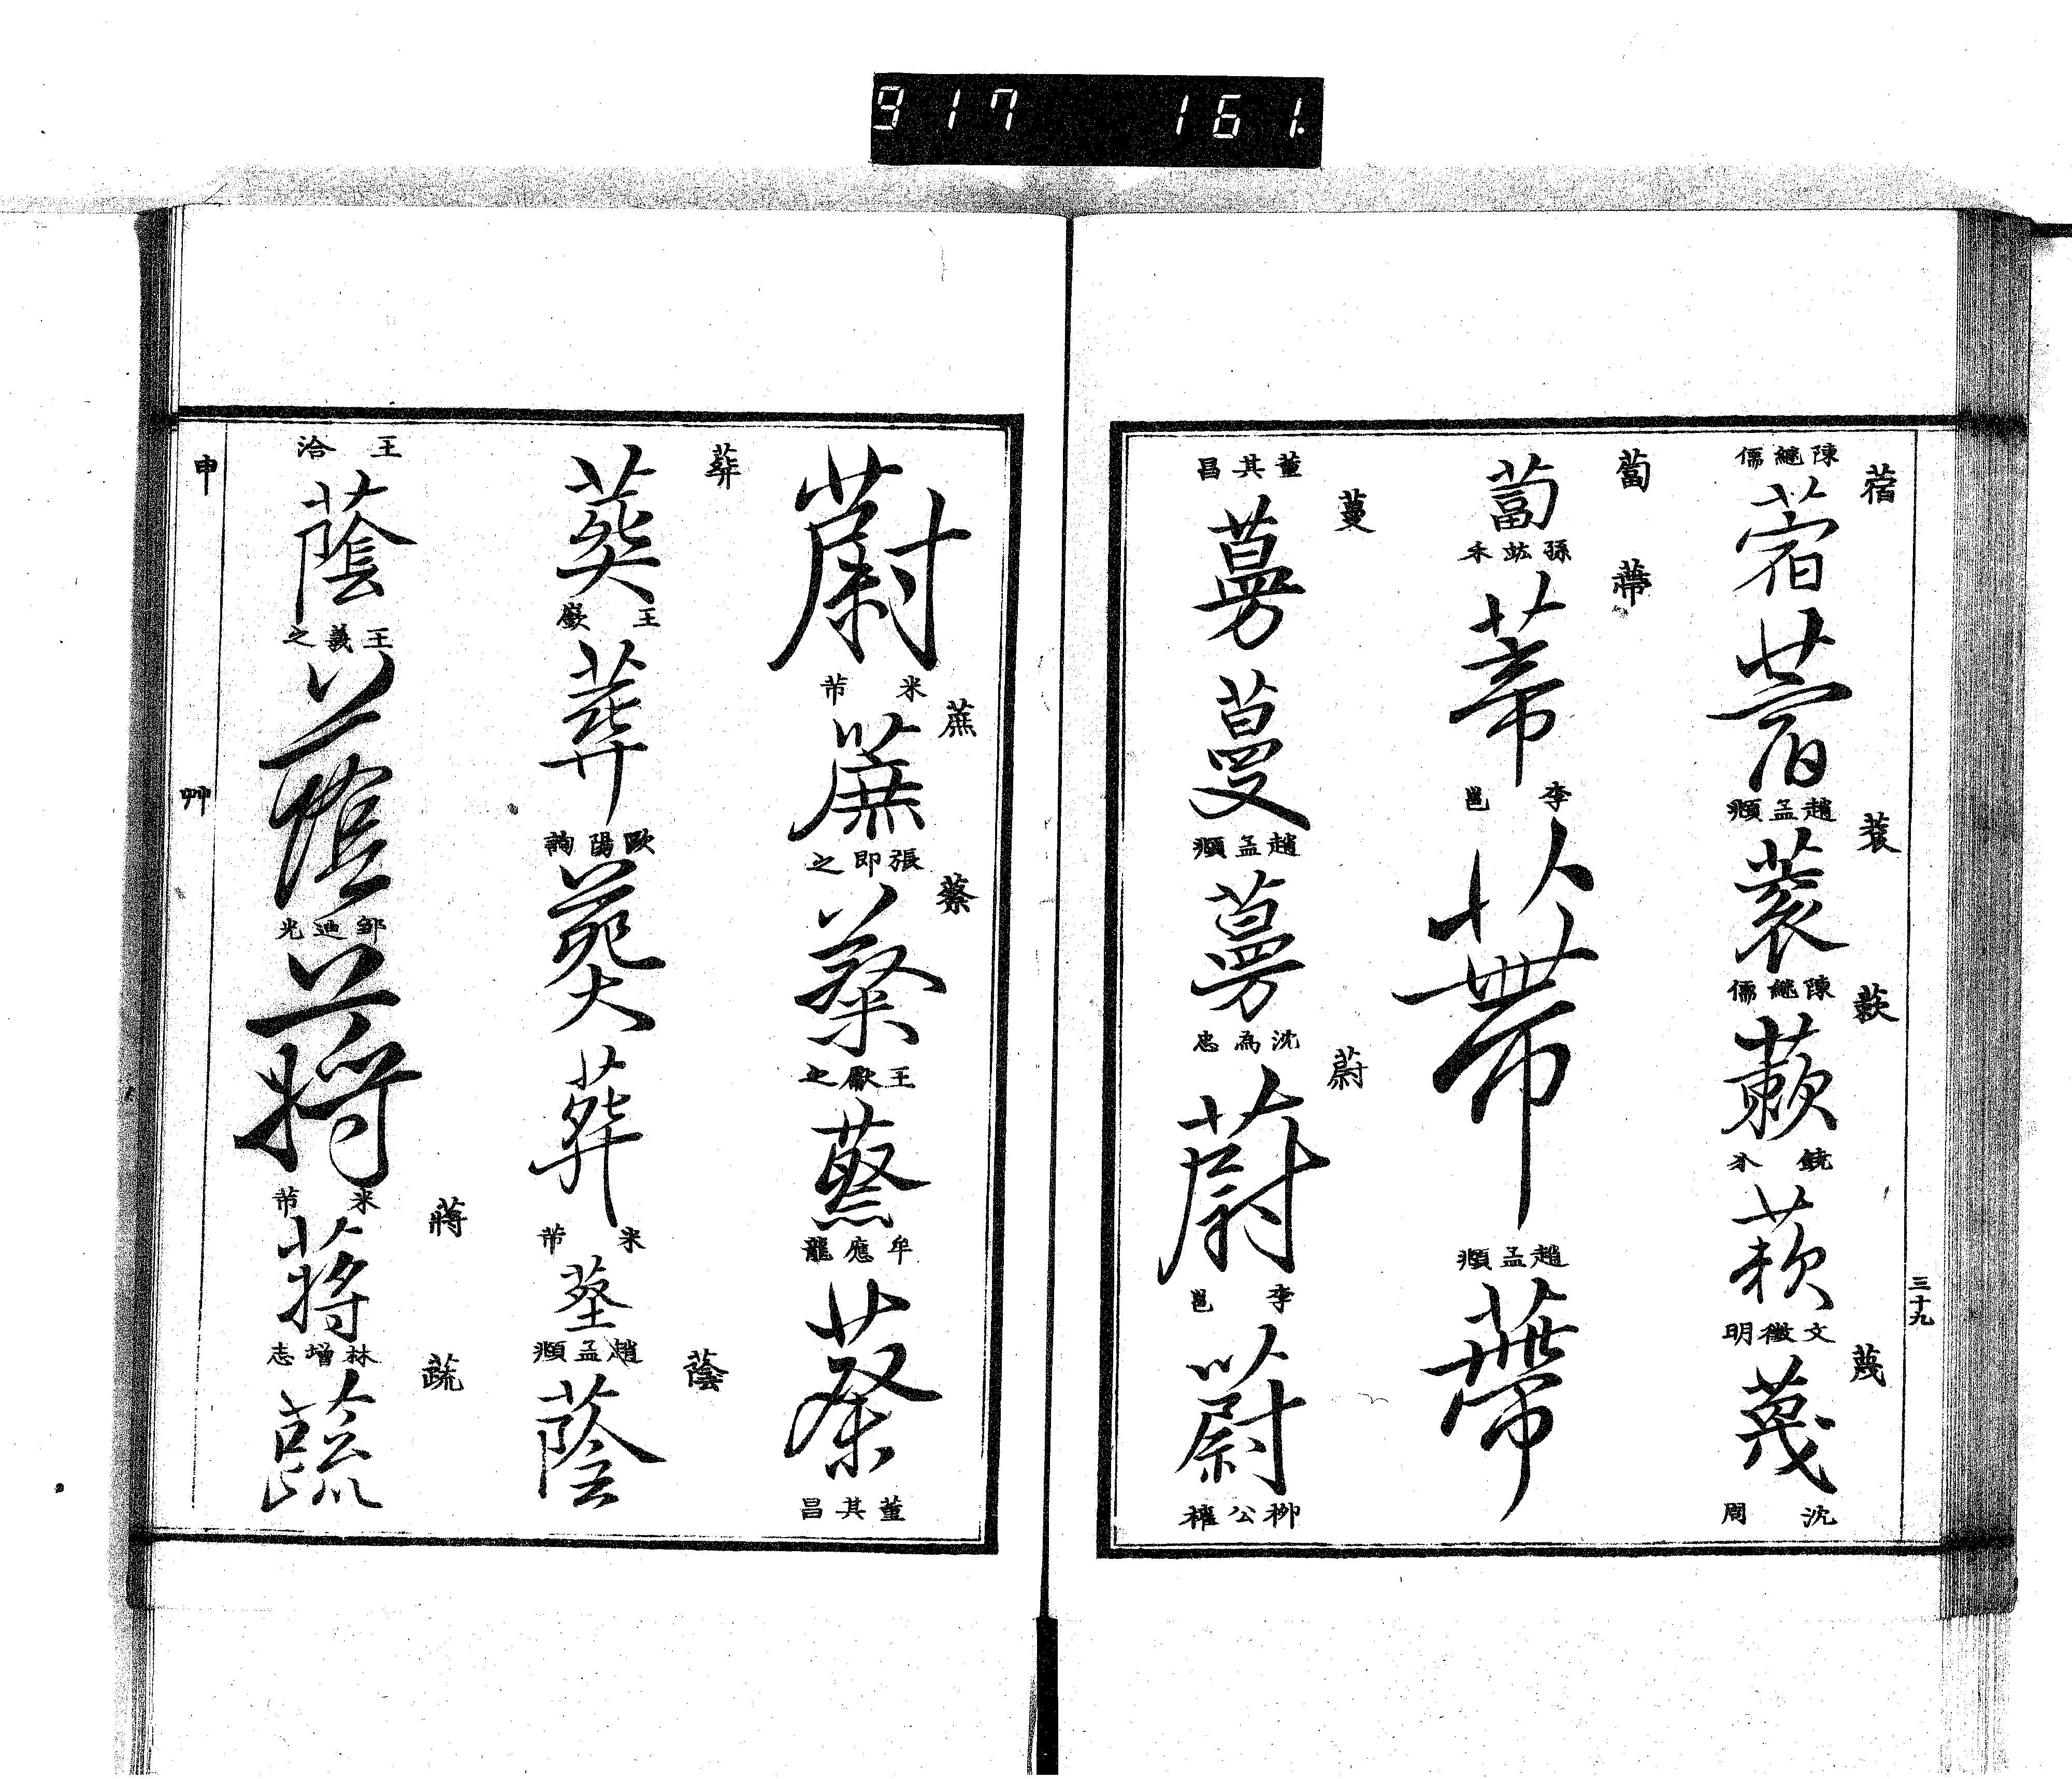 917 161.
三十九
蓿
陳繼儒
蓿
蓿
趙孟頫
蓑
蓑
陳繼儒
蔌
蔌
蔌
文徵明
蔑
蔑
沈周
蔔
蔔
蔕
蒂
李邕
蔕
趙孟頫
蔕
董其昌
蔓
蔓
蔓
趙孟頫
蔓
沈為忠
蔚
蔚
李邕
蔚
柳公權
蔚
米芾
蔗
蔗
張即之
蔡
蔡
王獻之
蔡
牟應龍
蔡
董其昌
葬
葬
王
葬
歐陽詢
葬
葬
米芾
葬
趙孟頫
蔭
蔭
王洽
蔭
王羲之
蔭
鄒迪光
蔣
米芾
蔣
蔣
林增志
蔬
蔬
申
艸